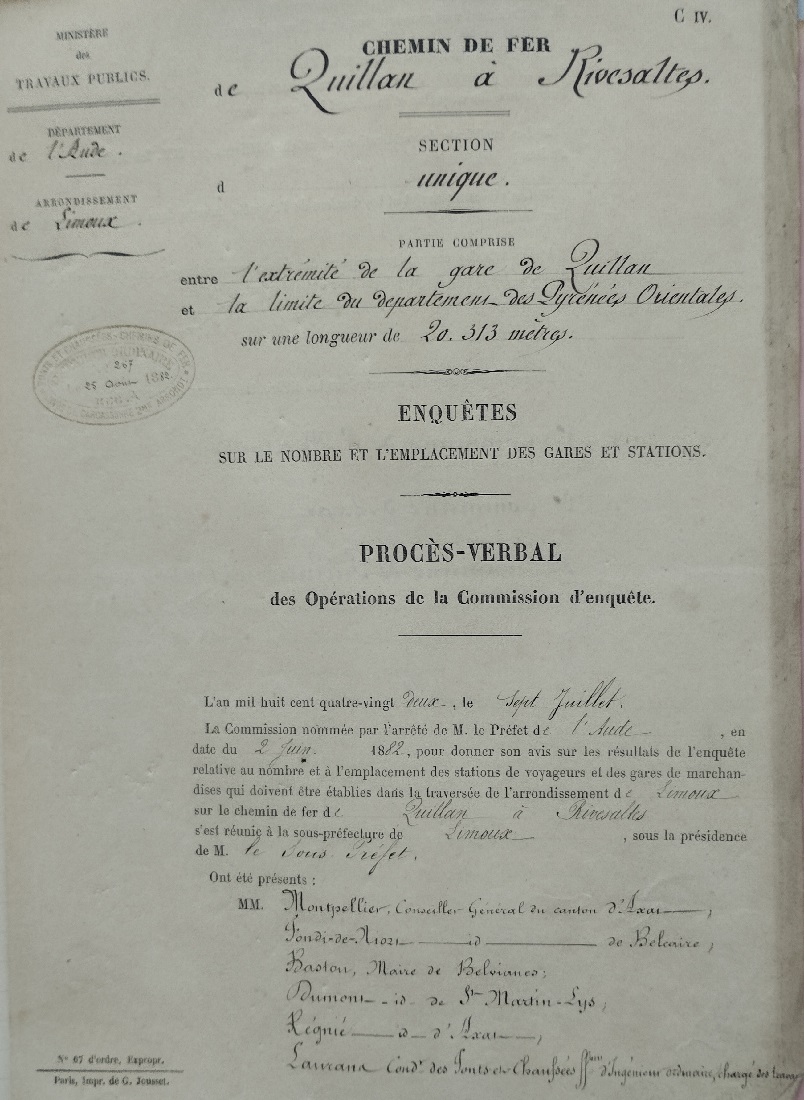 C IV.
MINISTÈRE
des
TRAVAUX PUBLICS.
DÉPARTEMENT
de l'Aude.
ARRONDISSEMENT
de Limoux.
CHEMIN DE FER
de Quillan à Rivesaltes.
SECTION
d unique.
PARTIE COMPRISE
entre l'extrémité de la gare de Quillan
et la limite du département des Pyrénées Orientales.
sur une longueur de 20.313 mètres.
267
25 Août 1882
ENQUÊTES
SUR LE NOMBRE ET L'EMPLACEMENT DES GARES ET STATIONS.
PROCÈS-VERBAL
des Opérations de la Commission d'enquête.
L'an mil huit cent quatre-vingt deux, le sept Juillet.
La Commission nommée par l'arrêté de M. le Préfet de l'Aude, en
date du 2 Juin 1882, pour donner son avis sur les résultats de l'enquête
relative au nombre et à l'emplacement des stations de voyageurs et des gares de marchan-
dises qui doivent être établies dans la traversée de l'arrondissement de Limoux
sur le chemin de fer de Quillan à Rivesaltes
s'est réunie à la sous-préfecture de Limoux, sous la présidence
de M. le Sous Préfet.
Ont été présents :
MM. Montpellier, Conseiller Général du canton d'Axat;
Fondi-de-Niort id de Belcaire;
Baston, Maire de Belvianes;
Dumont id de St Martin-Lys;
Régnié id d'Axat;
Laurana Condr des Ponts et Chaussées ffons d'Ingénieur ordinaire, chargé des travaux
N° 67 d'ordre, Expropr.
Paris, Impr. de G. Jousset.